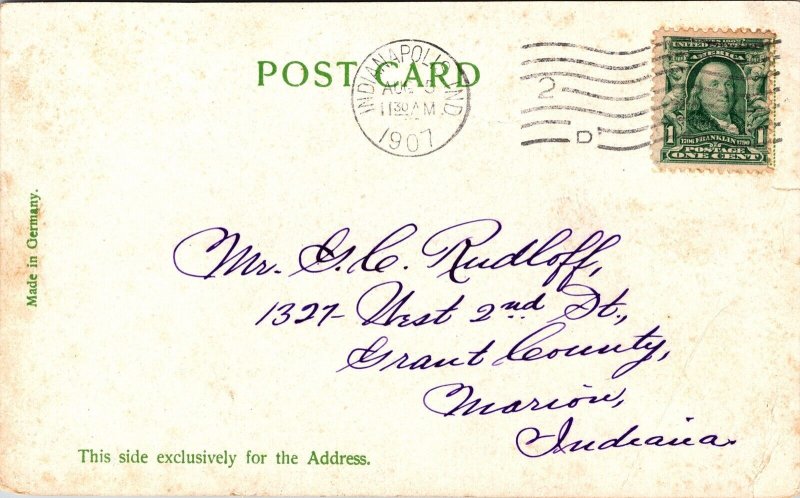 POST CARD
INDIANAPOLIS, IND
AUG 5
11 30 AM
1907
2
D
UNITED STATES OF
AMERICA
1 1706 FRANKLIN 1790 1
POSTAGE
ONE CENT
Made in Germany.
Mr. G. C. Rudloff,
1327- West 2nd St.,
Grant County,
Marion,
Indiana.
This side exclusively for the Address.